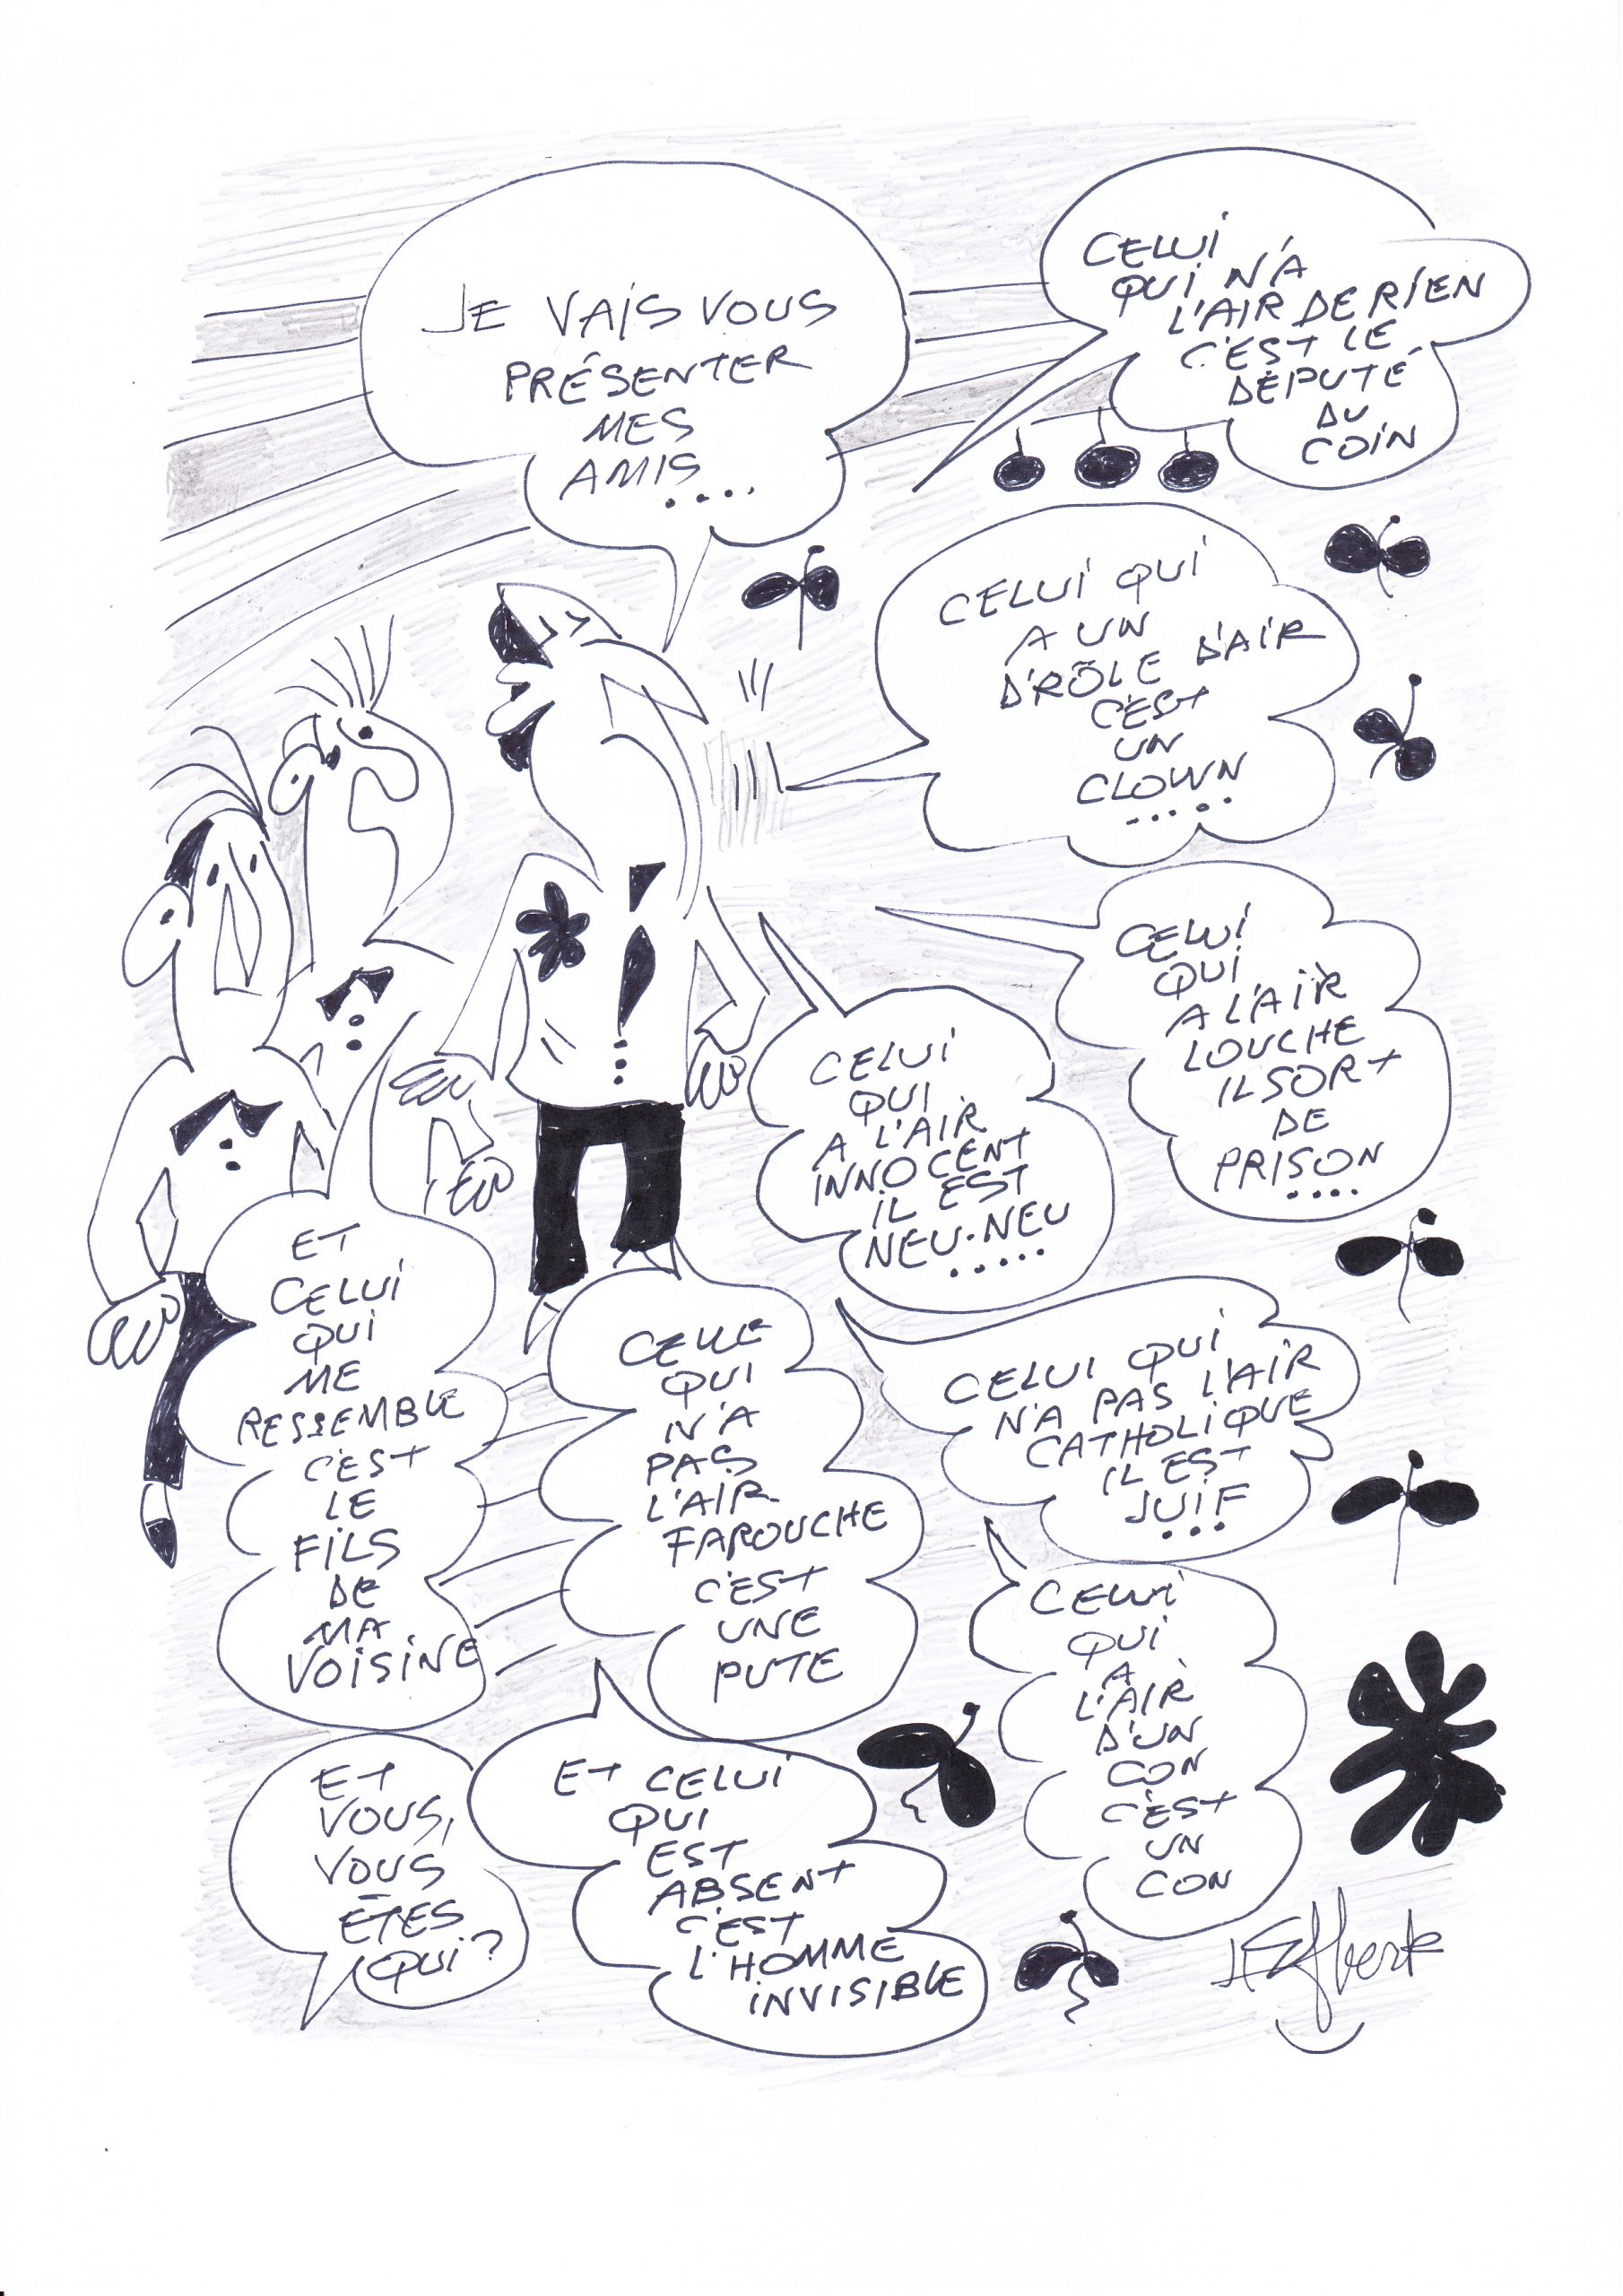 JE VAIS VOUS
PRÉSENTER
MES
AMIS....
CELUI
QUI N'A
L'AIR DE RIEN
C'EST LE
DÉPUTÉ
DU
COIN
CELUI QUI
A UN
DRÔLE D'AIR
C'EST
UN
CLOWN
.....
CELUI
QUI
A L'AIR
LOUCHE
IL SORT
DE
PRISON
....
CELUI
QUI
A L'AIR
INNOCENT
IL EST
NEU-NEU
.....
CELUI QUI
N'A PAS L'AIR
CATHOLIQUE
IL EST
JUIF
...
CELUI
QUI
A
L'AIR
D'UN
CON
C'EST
UN
CON
CELLE
QUI
N'A
PAS
L'AIR
FAROUCHE
C'EST
UNE
PUTE
ET
CELUI
QUI
ME
RESSEMBLE
C'EST
LE
FILS
DE
MA
VOISINE
ET CELUI
QUI
EST
ABSENT
C'EST
L'HOMME
INVISIBLE
ET
VOUS,
VOUS
ÊTES
QUI?